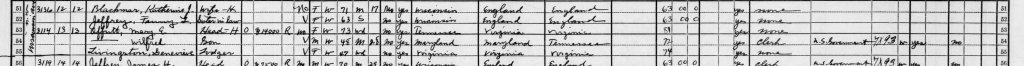 51 3136 12 12 Blachmar, Katherine J. Wife-H. No F W 71 M 17 No yes Wisconsin England England 63 00 0 yes none 51
52 Jeffrey, Fanny L. Sister in law V F W 63 S no yes Wisconsin England England 63 00 0 yes none 52
53 3114 13 13 Mary E. Head-H 0 $14000 R no V F W 73 wd no yes Tennessee Virginia Virginia 51 yes none 53
54 Wilfred Son V M W 45 M 28 no yes Maryland Maryland Tennessee 72 yes Clerk U.S. Government 7193 W yes no 54
55 Livingston, Genevieve Lodger V F W 67 wd no yes Virginia Virginia Virginia 74 yes none 55
56 3119 14 14 Jeffrey, James H. Head 0 $7500 R no M W 70 M 28 no yes Wisconsin England England 63 00 0 yes Clerk U.S. Government W yes no 56